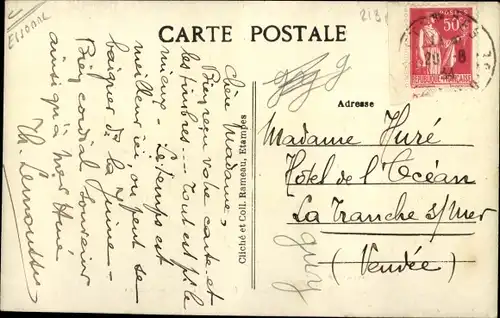 Essonne
CARTE POSTALE
213
50c
RÉPUBLIQUE FRANÇAISE
20 -8
Adresse
Madame Huré
Hôtel de l'Océan
La Tranche s/Mer
(Vendée)
Cliché et Coll. Rameau, Etampes
Chère Madame,
Bien reçu votre carte et
les timbres — Tout est p. le
mieux — Le temps est
meilleur ici on peut se
baigner de la Juine —
Bien cordial souvenir
ainsi qu'à